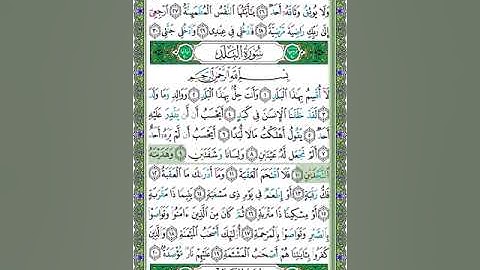 وَلَا يُوثِقُ وَثَاقَهُ أَحَدٌ ٢٦ يَا أَيَّتُهَا النَّفْسُ الْمُطْمَئِنَّةُ ٢٧ ارْجِعِي
إِلَىٰ رَبِّكِ رَاضِيَةً مَّرْضِيَّةً ٢٨ فَادْخُلِي فِي عِبَادِي ٢٩ وَادْخُلِي جَنَّتِي ٣٠
سُورَةُ الْبَلَدِ
بِسْمِ اللَّهِ الرَّحْمَٰنِ الرَّحِيمِ
لَا أُقْسِمُ بِهَٰذَا الْبَلَدِ ١ وَأَنتَ حِلٌّ بِهَٰذَا الْبَلَدِ ٢ وَوَالِدٍ وَمَا وَلَدَ
٣ لَقَدْ خَلَقْنَا الْإِنسَانَ فِي كَبَدٍ ٤ أَيَحْسَبُ أَن لَّن يَقْدِرَ عَلَيْهِ
أَحَدٌ ٥ يَقُولُ أَهْلَكْتُ مَالًا لُّبَدًا ٦ أَيَحْسَبُ أَن لَّمْ يَرَهُ أَحَدٌ
٧ أَلَمْ نَجْعَل لَّهُ عَيْنَيْنِ ٨ وَلِسَانًا وَشَفَتَيْنِ ٩ وَهَدَيْنَاهُ
النَّجْدَيْنِ ١٠ فَلَا اقْتَحَمَ الْعَقَبَةَ ١١ وَمَا أَدْرَاكَ مَا الْعَقَبَةُ ١٢
فَكُّ رَقَبَةٍ ١٣ أَوْ إِطْعَامٌ فِي يَوْمٍ ذِي مَسْغَبَةٍ ١٤ يَتِيمًا ذَا مَقْرَبَةٍ
١٥ أَوْ مِسْكِينًا ذَا مَتْرَبَةٍ ١٦ ثُمَّ كَانَ مِنَ الَّذِينَ آمَنُوا وَتَوَاصَوْا
بِالصَّبْرِ وَتَوَاصَوْا بِالْمَرْحَمَةِ ١٧ أُولَٰئِكَ أَصْحَابُ الْمَيْمَنَةِ ١٨ وَالَّذِينَ
كَفَرُوا بِآيَاتِنَا هُمْ أَصْحَابُ الْمَشْأَمَةِ ١٩ عَلَيْهِمْ نَارٌ مُّؤْصَدَةٌ ٢٠